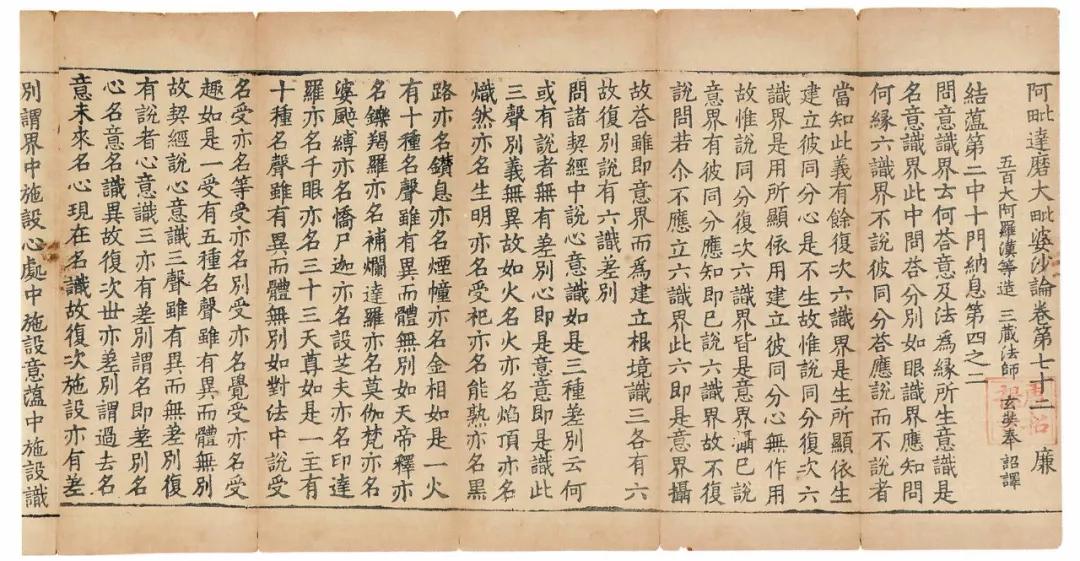 阿毗達磨大毗婆沙論卷第七十二 廉
五百大阿羅漢等造 三藏法師 玄奘奉 詔譯
結薀第二中十門納息第四之二
問意識界云何荅意及法為緣所生意識是
名意識界此中問荅分別如眼識界應知問
何緣六識界不說彼同分荅應說而不說者
當知此義有餘復次六識界是生所顯依生
建立彼同分心是不生故惟說同分復次六
識界是用所顯依用建立彼同分心無作用
故惟說同分復次六識界皆是意界攝已說
意界有彼同分應知即已說六識界故不復
說問若尒不應立六識界此六即是意界攝
故荅雖即意界而為建立根境識三各有六
故復別說有六識差別
問諸契經中說心意識如是三種差別云何
或有說者無有差別心即是意意即是識此
三聲別義無異故如火名火亦名焰頂亦名
熾然亦名生明亦名受祀亦名能熟亦名黑
路亦名鑽息亦名煙幢亦名金相如是一火
有十種名聲雖有異而體無別如天帝釋亦
名鑠羯羅亦名補爛達羅亦名莫伽梵亦名
婆颰縛亦名憍尸迦亦名設芝夫亦名印達
羅亦名千眼亦名三十三天尊如是一主有
十種名聲雖有異而體無別如對法中說受
名受亦名等受亦名別受亦名覺受亦名受
趣如是一受有五種名聲雖有異而體無別
故契經說心意識三聲雖有異而無差別復
有說者心意識三亦有差別謂名即差別名
心名意名識異故復次世亦差別謂過去名
意未來名心現在名識故復次施設亦有差
別謂界中施設心處中施設意薀中施設識